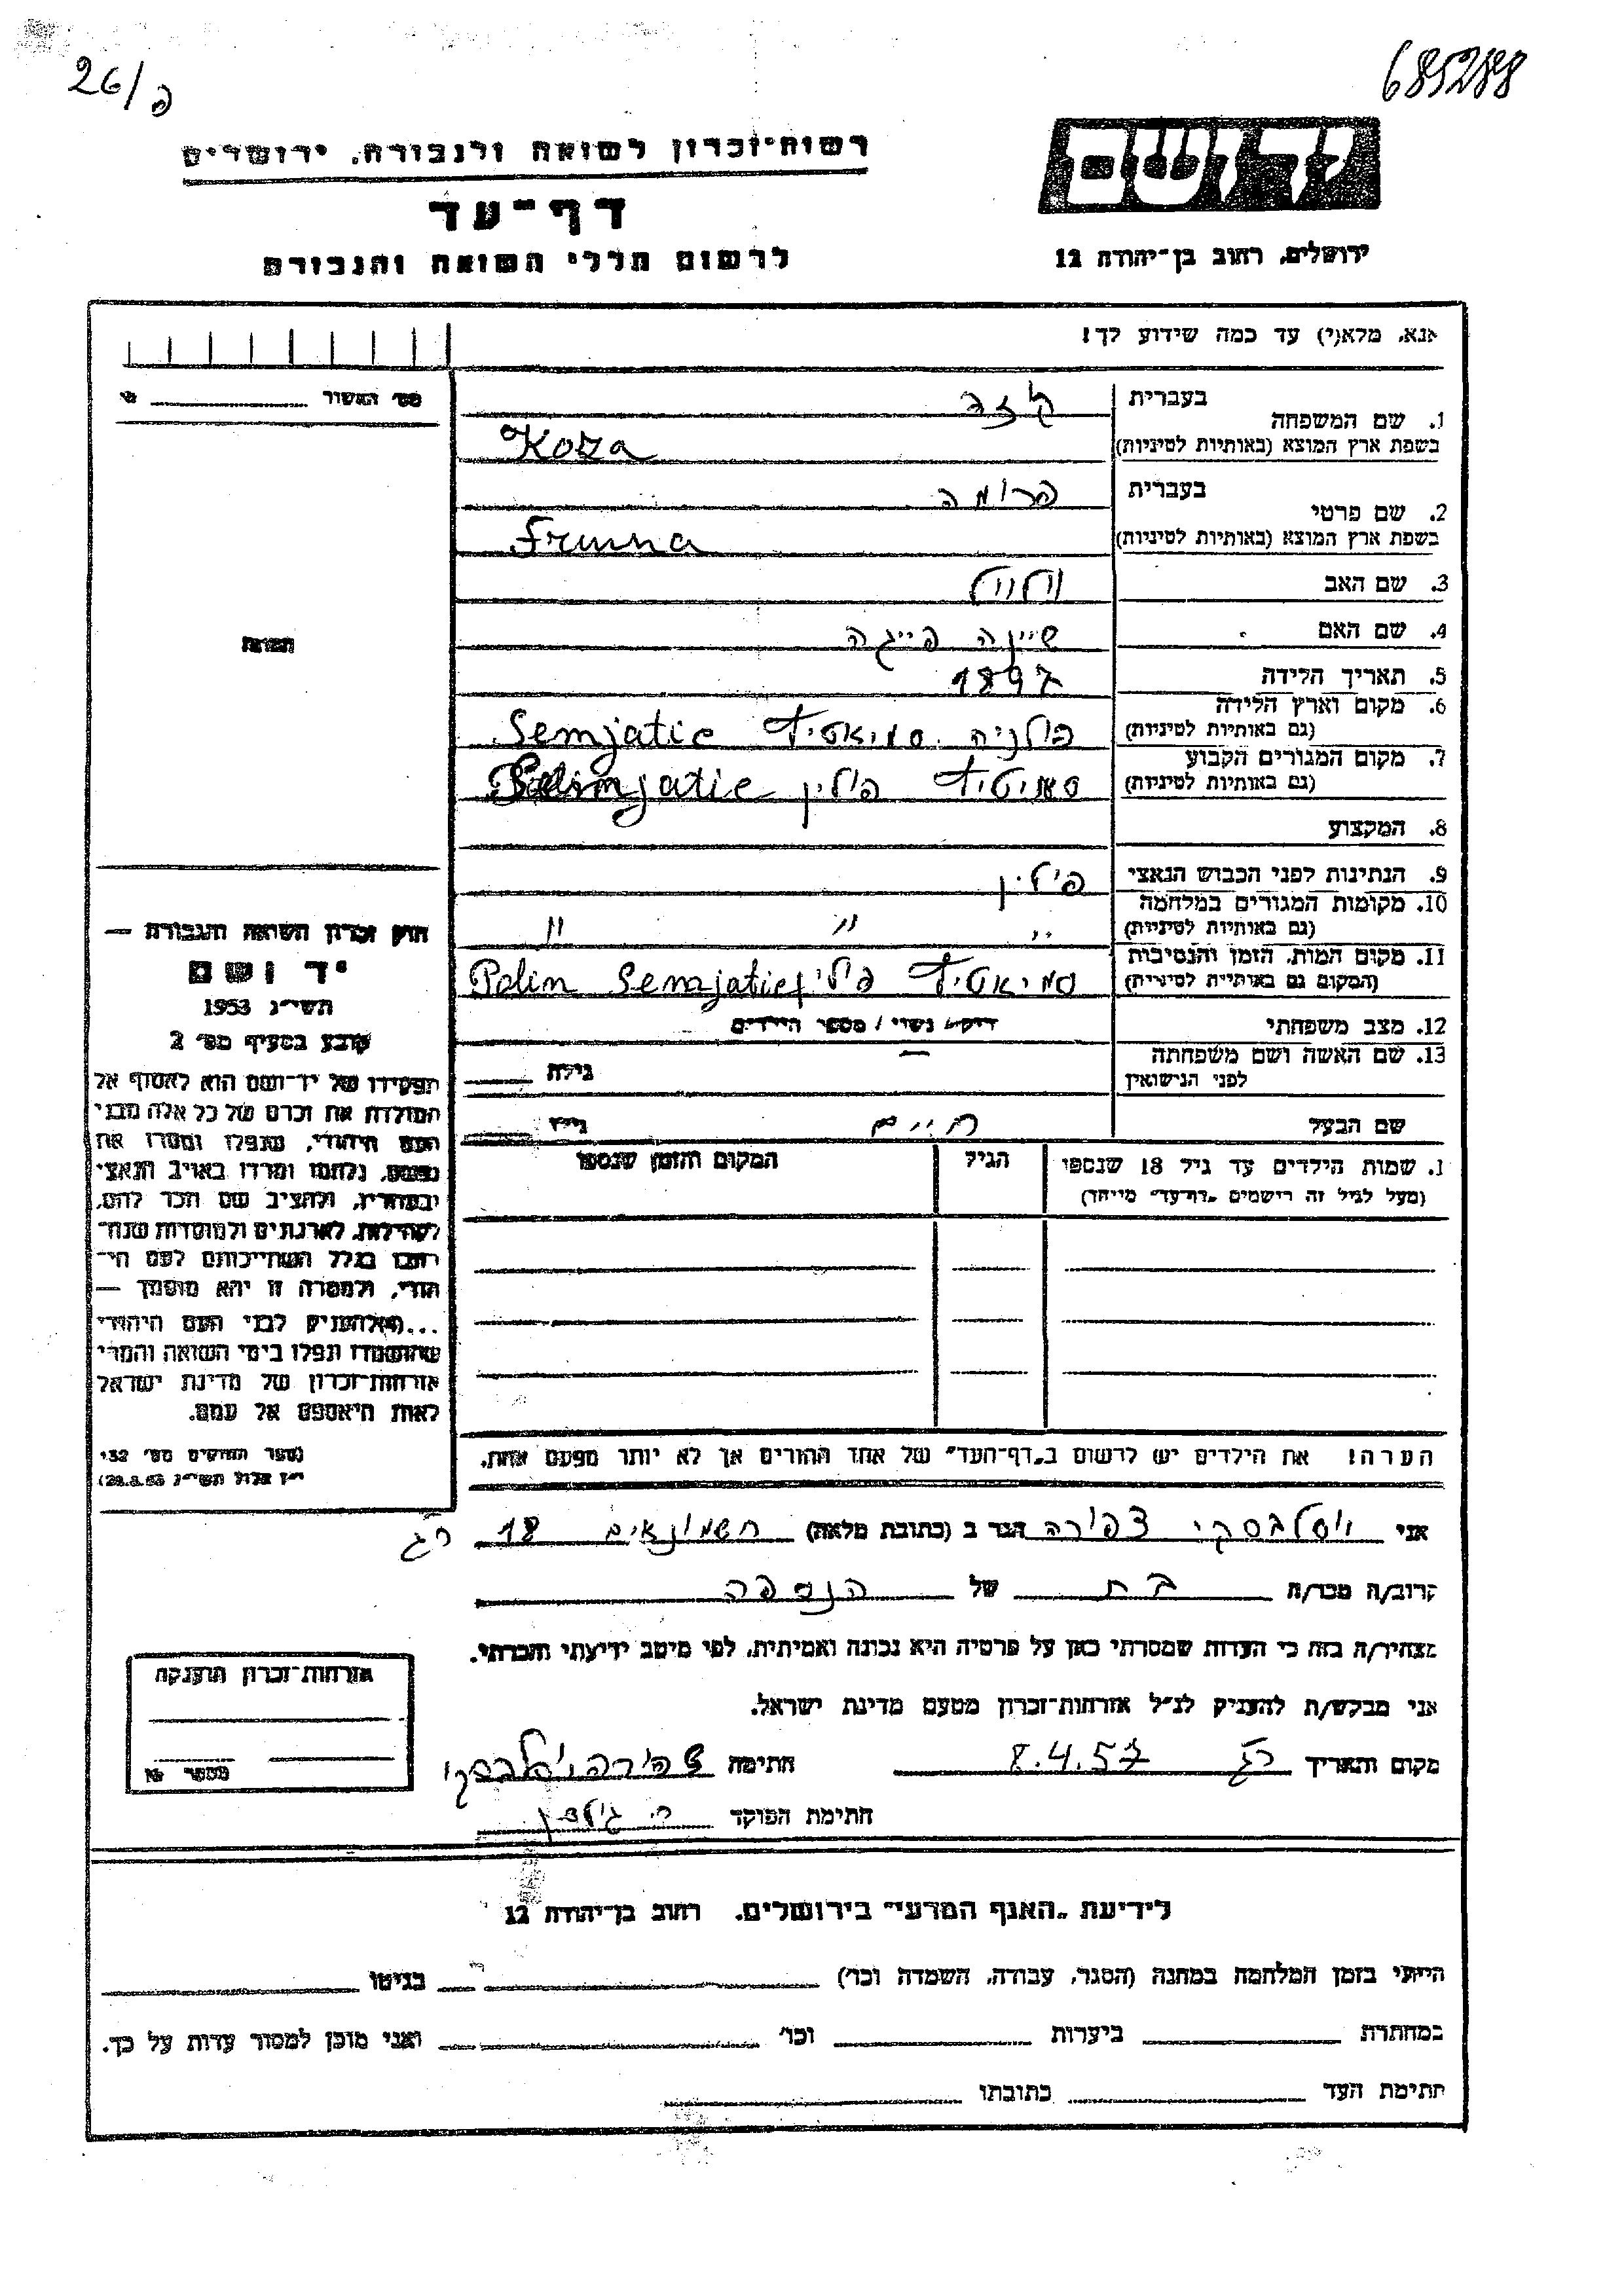 26/פ
685288
רשות-זכרון לשואה ולגבורה, ירושלים
יד ושם
דף-עד
לרשום חללי השואה והגבורה
ירושלים, רחוב בן-יהודה 12
אנא, מלא(י) עד כמה שידוע לך!
מס' האשור
1. שם המשפחה
בעברית
בשפת ארץ המוצא (באותיות לטיניות) Koza
2. שם פרטי
בעברית פרומה
בשפת ארץ המוצא (באותיות לטיניות) Frumna
3. שם האב
4. שם האם שיינה פייגה
5. תאריך הלידה 1897
6. מקום וארץ הלידה
(גם באותיות לטיניות) פולניה Semjatic
7. מקום המגורים הקבוע
(גם באותיות לטיניות) פולין
8. המקצוע
9. הנתינות לפני הכבוש הנאצי פולין
10. מקומות המגורים במלחמה
(גם באותיות לטיניות) " " "
11. מקום המות, הזמן והנסיבות
(המקום גם באותיות לטיניות) פולין Polin Semjatic
12. מצב משפחתי רווק / נשוי / מספר הילדים
13. שם האשה ושם משפחתה
לפני הנישואין — גילה
שם הבעל חיים גילו
תמונה
חוק זכרון השואה והגבורה —
יד ושם
תשי"ג 1953
קובע בסעיף מס' 2
תפקידו של יד-ושם הוא לאסוף אל
המולדת את זכרם של כל אלה מבני
העם היהודי, שנפלו ומסרו את
נפשם, נלחמו ומרדו באויב הנאצי
ובעוזריו, ולהציב שם וזכר להם,
לקהילות, לארגונים ולמוסדות שנח-
רבו בגלל השתייכותם לעם הי-
הודי, ולמטרה זו יהא מוסמך —
...(ה) להעניק לבני העם היהודי
שהושמדו ונפלו בימי השואה והמרי
אזרחות-זכרון של מדינת ישראל
לאות היאספם אל עמם.
(ספר החוקים מס' 132
י"ז אלול תשי"ג 28.8.53)
ו. שמות הילדים עד גיל 18 שנספו
(מעל לגיל זה רישמים "דף-עד" מייחד)
הגיל
המקום והזמן שנספו
הערה! את הילדים יש לרשום ב"דף-העד" של אחד ההורים אך לא יותר מפעם אחת.
אני וסלבסקי צפורה הגר ב (כתובת מלאה) חשמונאים 18 רג
קרוב/ה מכר/ה בת של הנספה
מצהיר/ה בזה כי העדות שמסרתי כאן על פרטיה היא נכונה ואמיתית, לפי מיטב ידיעתי והכרתי.
אני מבקש/ת להעניק לנ"ל אזרחות-זכרון מטעם מדינת ישראל.
מקום ותאריך רג 8.4.57 חתימה
חתימת הפוקד
אזרחות-זכרון הוענקה
מספר
לידיעת "האגף המדעי" בירושלים, רחוב בן-יהודה 12
הייתי בזמן המלחמה במחנה (הסגר, עבודה, השמדה וכו') בגיטו
במחתרת ביערות וכו' ואני מוכן למסור עדות על כך.
חתימת העד כתובתו